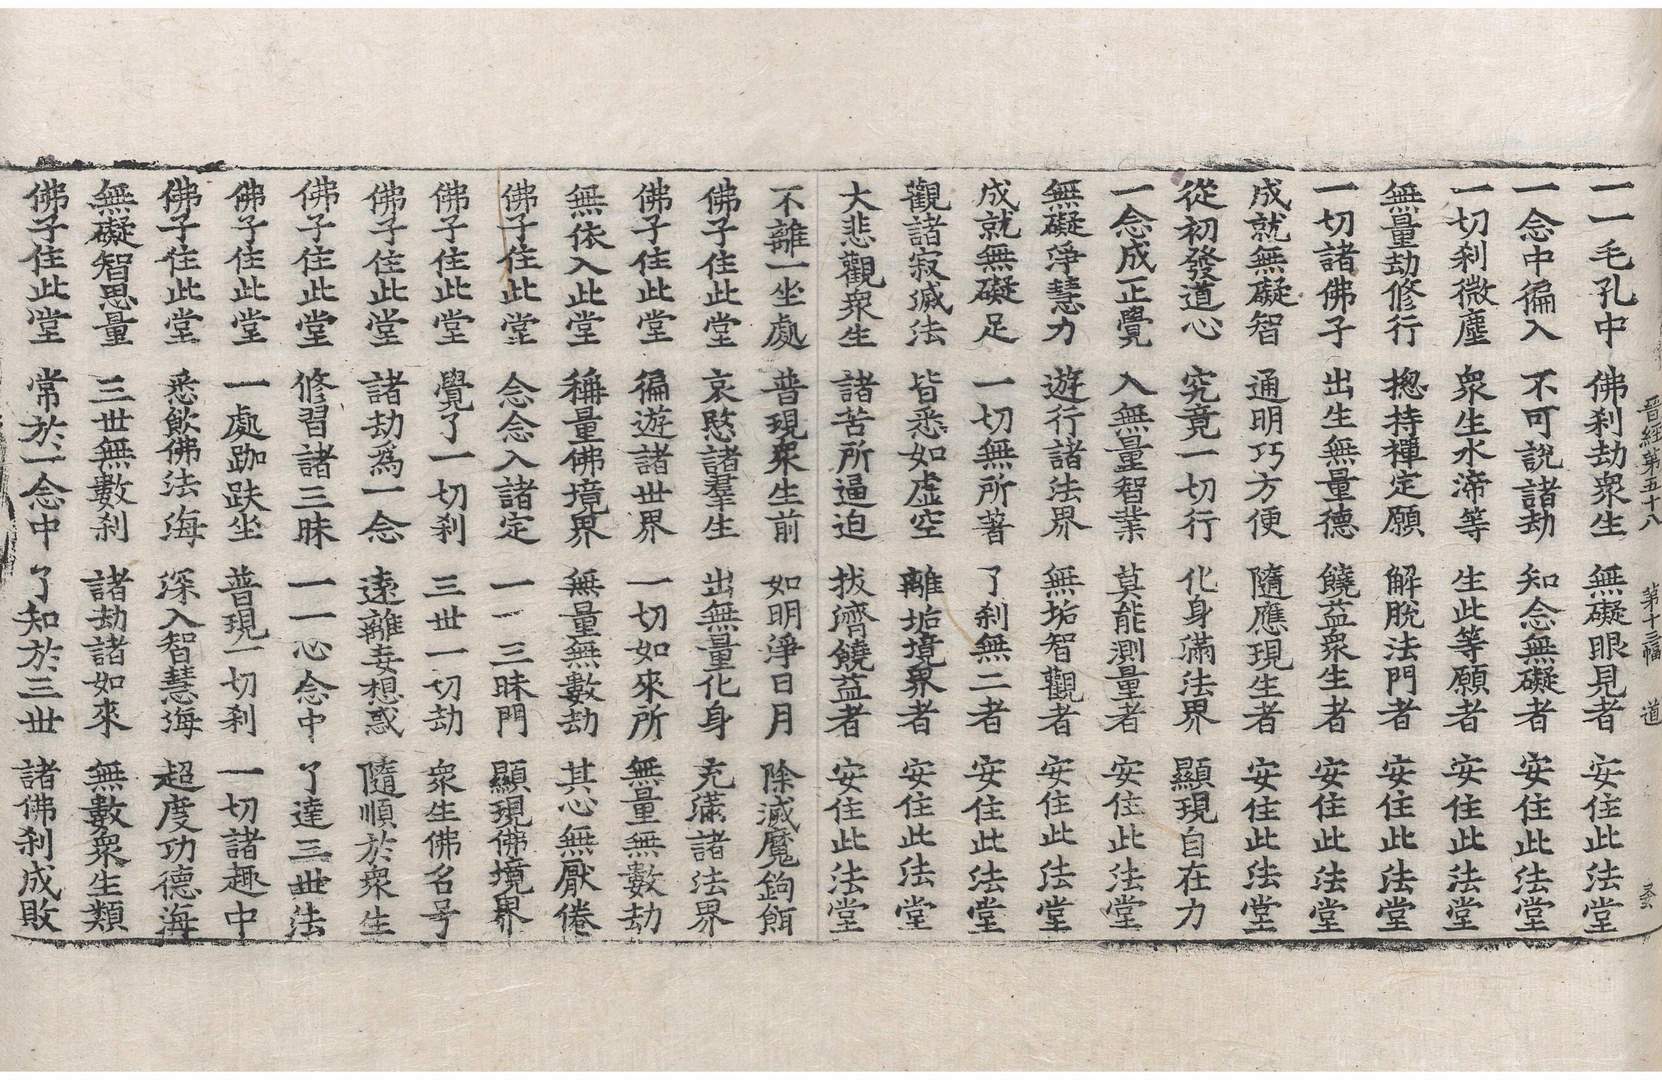 晉經第五十八 第十三幅 道
一一毛孔中 佛刹劫衆生 無礙眼見者 安住此法堂
一念中徧入 不可說諸劫 知念無礙者 安住此法堂
一切刹微塵 衆生水渧等 生此等願者 安住此法堂
無量劫修行 摠持禪定願 解脫法門者 安住此法堂
一切諸佛子 出生無量德 饒益衆生者 安住此法堂
成就無礙智 通明巧方便 隨應現生者 安住此法堂
從初發道心 究竟一切行 化身滿法界 顯現自在力
一念成正覺 入無量智業 莫能測量者 安住此法堂
無礙淨慧力 遊行諸法界 無垢智觀者 安住此法堂
成就無礙足 一切無所著 了刹無二者 安住此法堂
觀諸寂滅法 皆悉如虛空 離垢境界者 安住此法堂
大悲觀衆生 諸苦所逼迫 拔濟饒益者 安住此法堂
不離一坐處 普現衆生前 如明淨日月 除滅魔鉤餌
佛子住此堂 哀愍諸羣生 出無量化身 充滿諸法界
佛子住此堂 徧遊諸世界 一切如來所 無量無數劫
無依入此堂 稱量佛境界 無量無數劫 其心無厭倦
佛子住此堂 念念入諸定 一一三昧門 顯現佛境界
佛子住此堂 覺了一切刹 三世一切劫 衆生佛名号
佛子住此堂 諸劫爲一念 遠離妄想惑 隨順於衆生
佛子住此堂 修習諸三昧 一一心念中 了達三世法
佛子住此堂 一處跏趺坐 普現一切刹 一切諸趣中
佛子住此堂 悉飲佛法海 深入智慧海 超度功德海
無礙智思量 三世無數刹 諸劫諸如來 無數衆生類
佛子住此堂 常於一念中 了知於三世 諸佛刹成敗